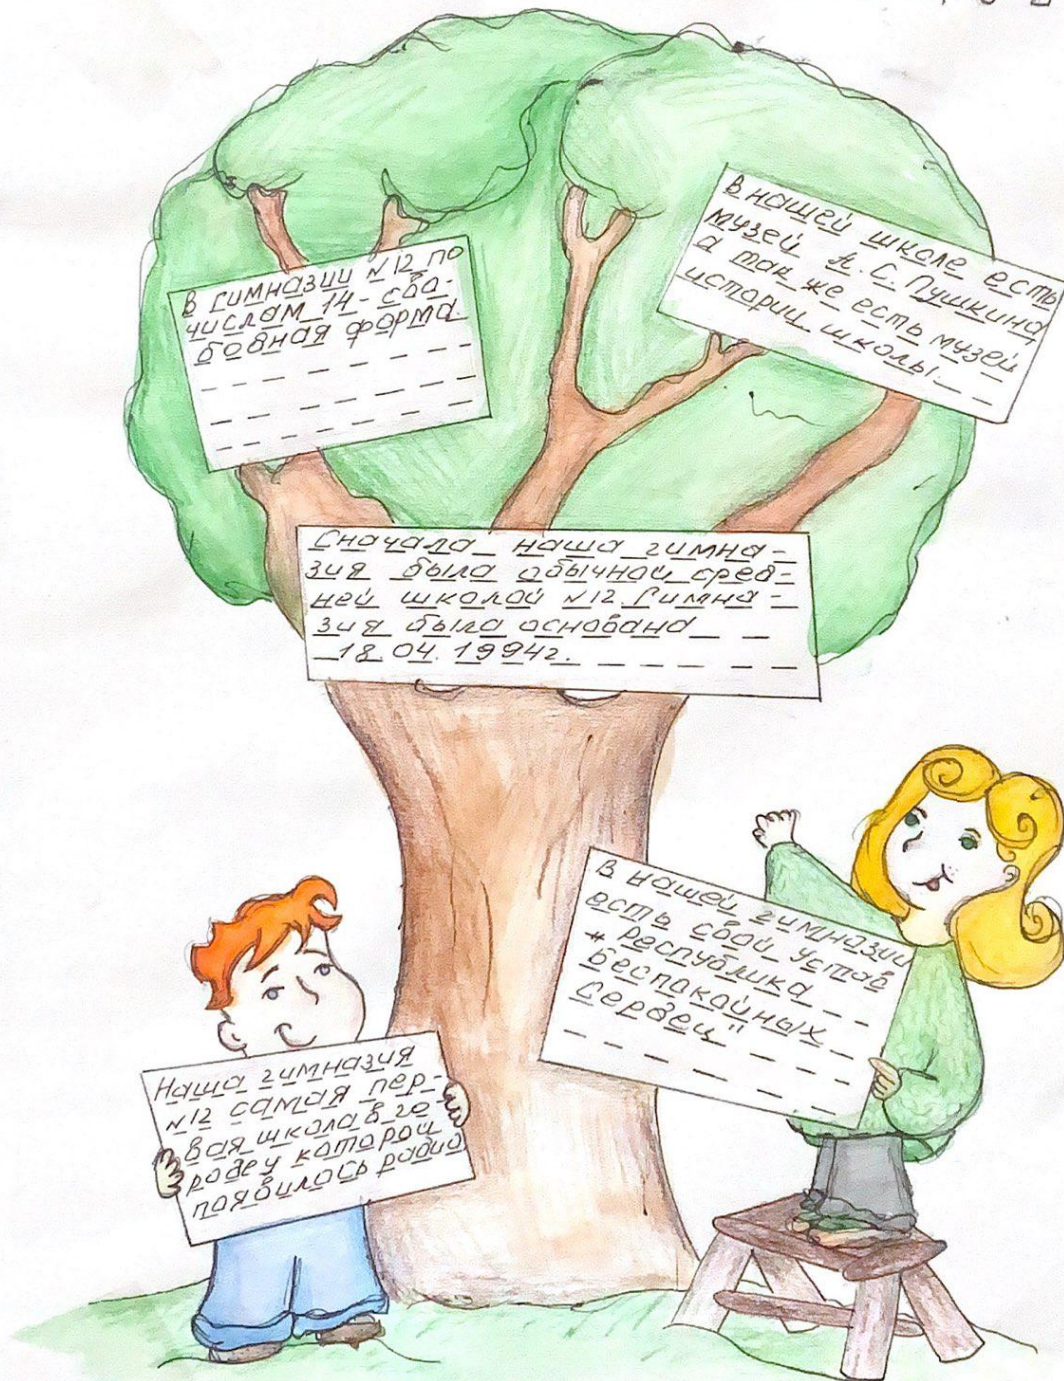 В гимназии №12 по
числам 14- сво-
бодная форма.
В нашей школе есть
музей А.С.Пушкина,
а так же есть музей
истории школы.
Сначала наша гимна-
зия была обычной сред-
ней школой №12.Гимна-
зия была основана
18.04.1994г.
В нашей гимназии
есть свой устав
"Республика
беспакойных
сердец"
Наша гимназия
№12 самая пер-
вая школа в го-
роде у которой
появилось радио